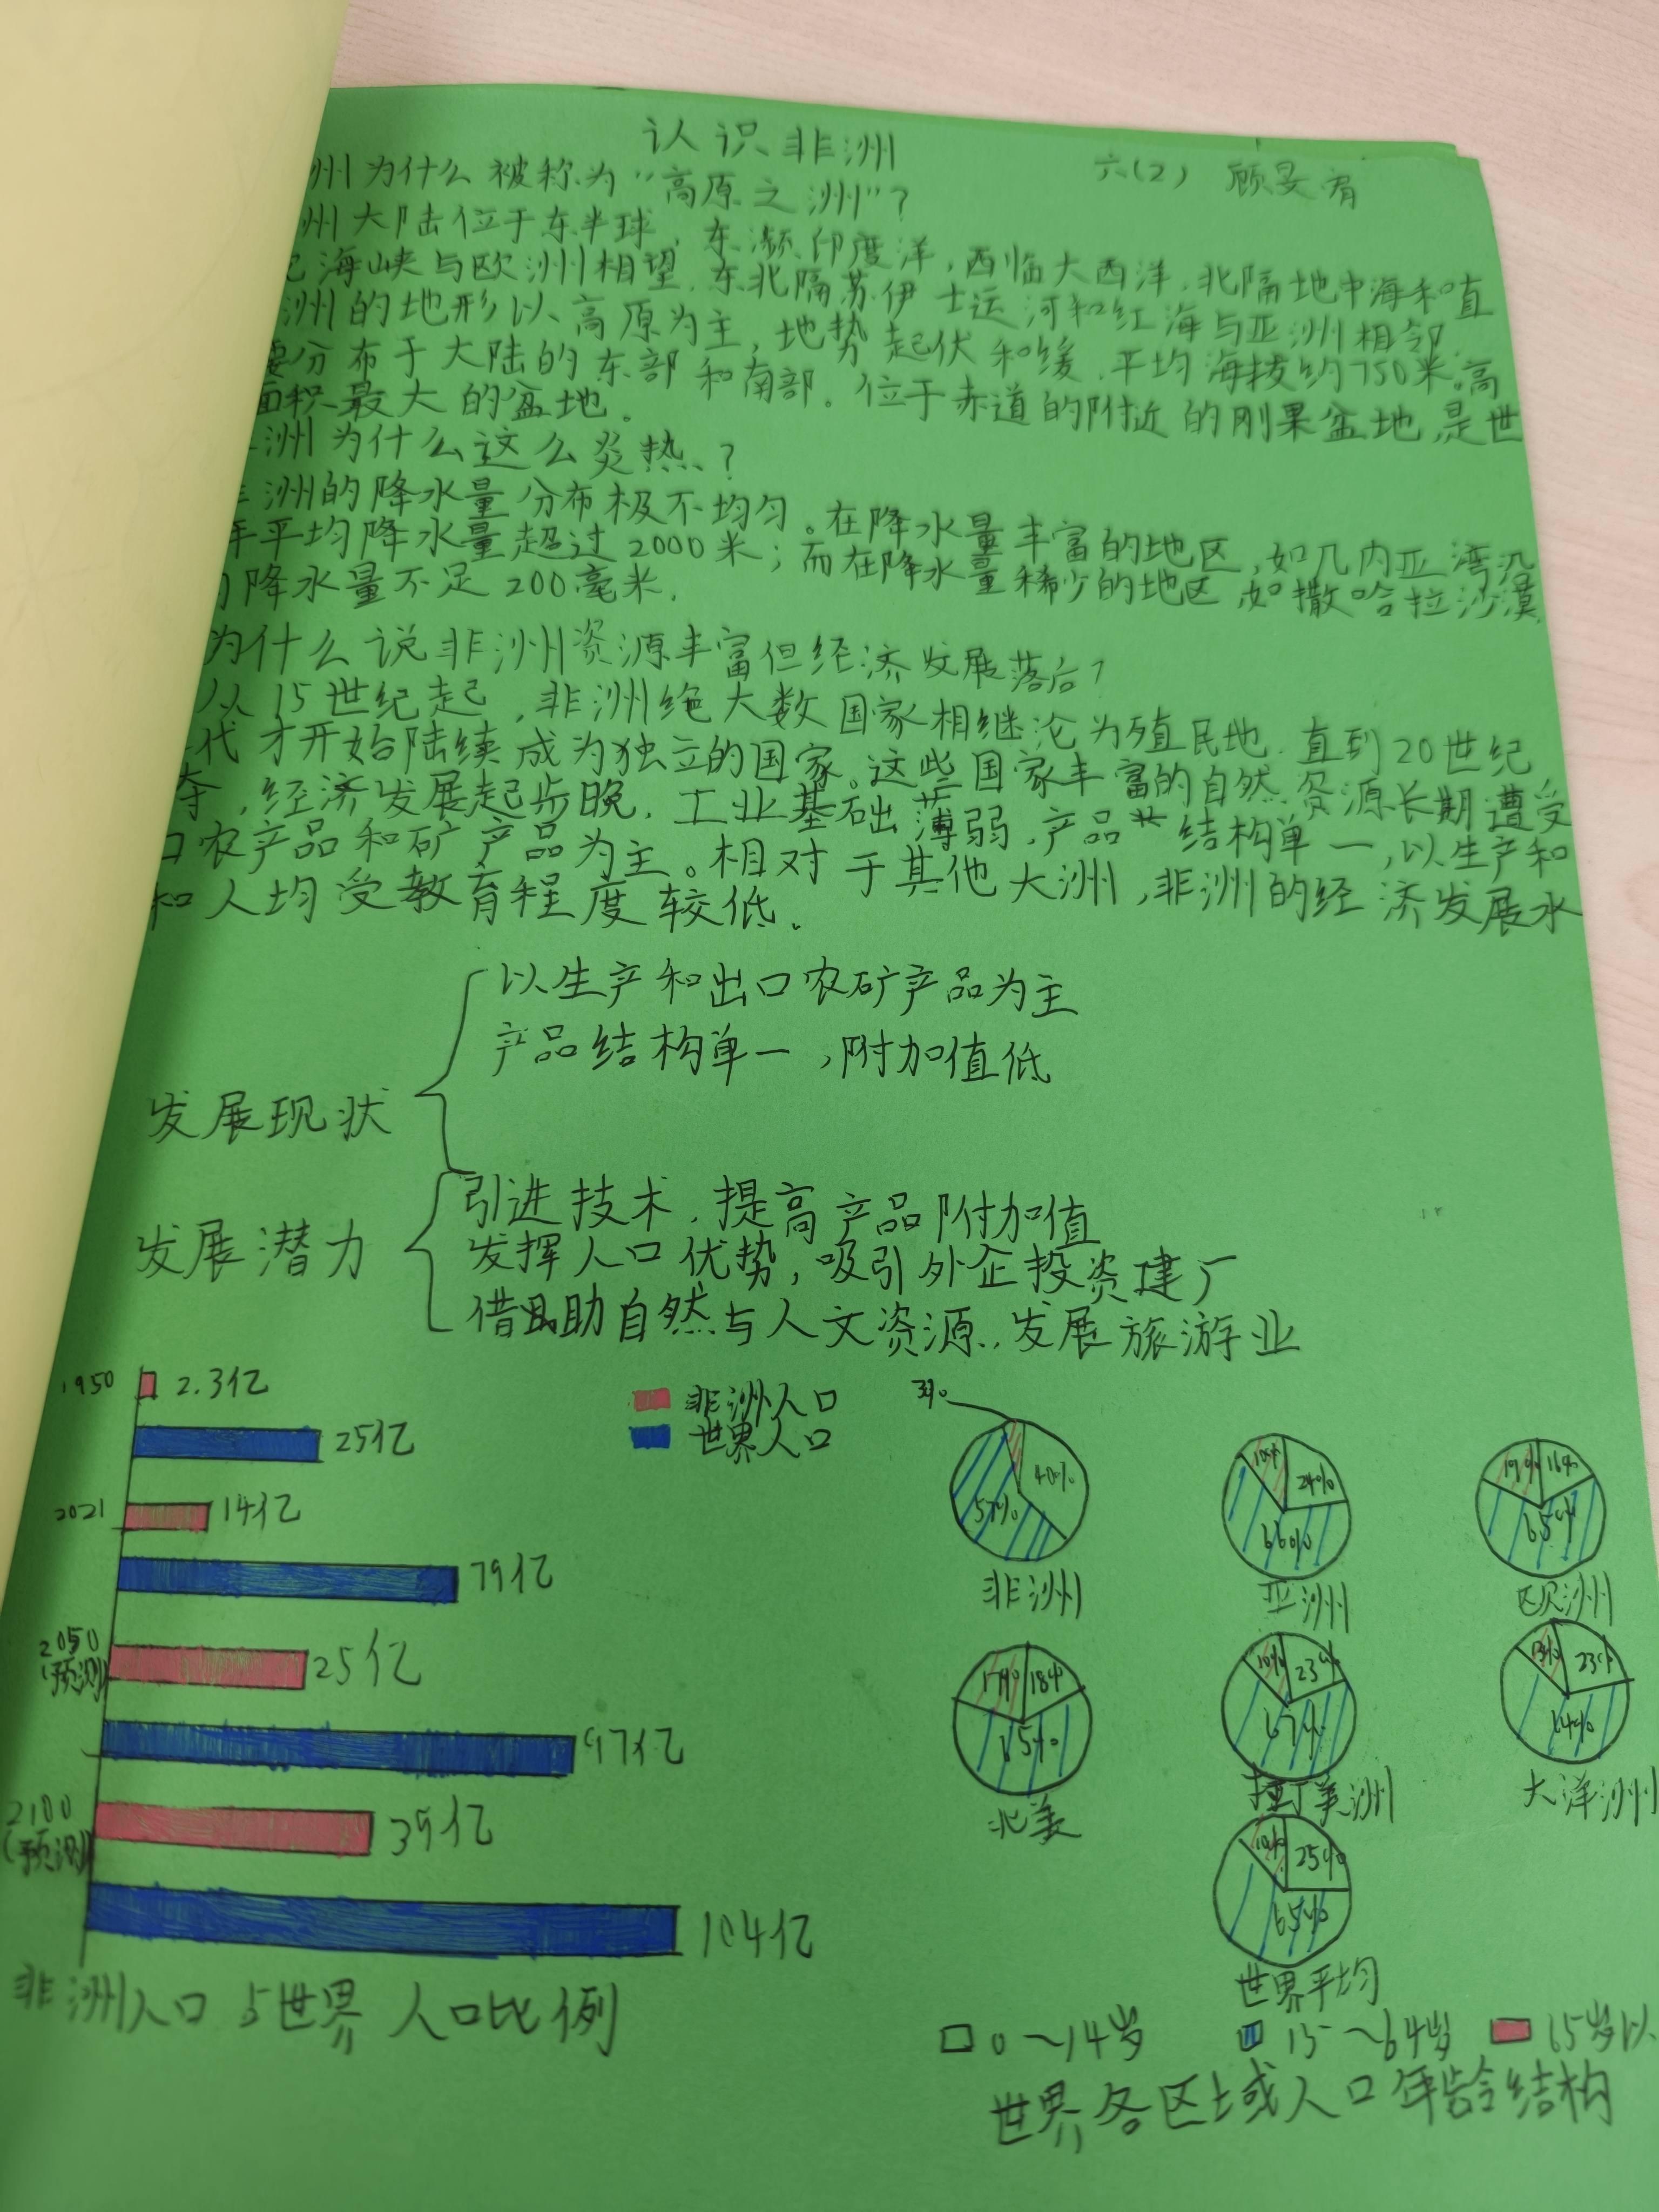 认识非洲
六(2) 顾旻宥
州为什么被称为“高原之洲”？
州大陆位于东半球，东濒印度洋，西临大西洋，北隔地中海和直
海峡与欧洲相望，东北隔苏伊士运河和红海与亚洲相邻，
洲的地形以高原为主，地势起伏和缓，平均海拔约750米。高
要分布于大陆的东部和南部。位于赤道的附近的刚果盆地，是世
面积最大的盆地。
洲为什么这么炎热？
洲的降水量分布极不均匀。在降水量丰富的地区，如几内亚湾沿
年平均降水量超过2000米；而在降水量稀少的地区，如撒哈拉沙漠，
降水量不足200毫米．
为什么说非洲资源丰富但经济发展落后？
从15世纪起，非洲绝大数国家相继沦为殖民地．直到20世纪
代才开始陆续成为独立的国家。这些国家丰富的自然资源长期遭受
夺，经济发展起步晚．工业基础薄弱，产品结构单一，以生产和
口农产品和矿产品为主。相对于其他大洲，非洲的经济发展水
和人均受教育程度较低．
发展现状
以生产和出口农矿产品为主
产品结构单一，附加值低
发展潜力
引进技术，提高产品附加值
发挥人口优势，吸引外企投资建厂
借助自然与人文资源，发展旅游业
1950 2.3亿
25亿
2021 14亿
79亿
2050(预测) 25亿
97亿
2100(预测) 39亿
104亿
非洲人口
世界人口
非洲人口与世界人口比例
3% 40% 57%
非洲
10% 24% 66%
亚洲
19% 16% 65%
欧洲
17% 18% 65%
北美
10% 23% 67%
拉丁美洲
13% 23% 64%
大洋洲
10% 25% 65%
世界平均
0～14岁 15～64岁 65岁以
世界各区域人口年龄结构